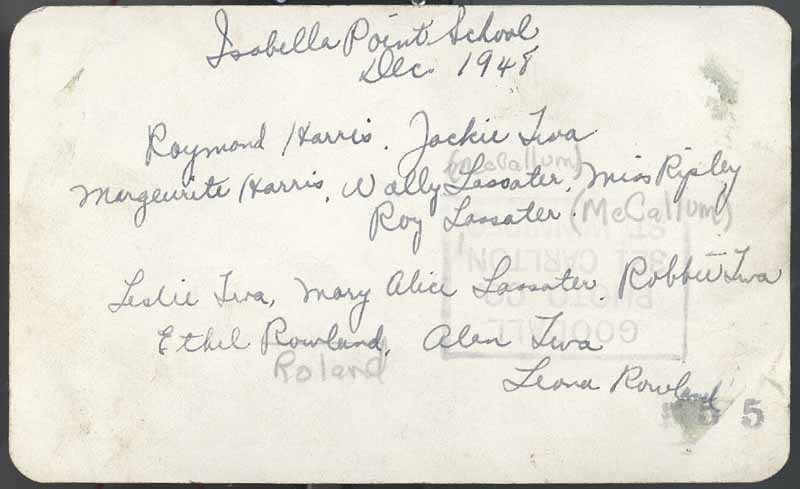 Isabella Point School
Dec. 1948
Raymond Harris. Jackie Twa
(McCallum)
Margeurite Harris, Wally Lassater, Miss Ripley
Roy Lassater. (McCallum)
Leslie Twa, Mary Alice Lassater, Robbie Twa
Ethel Rowland, Alan Twa
Roland
Leona Rowland
5 5
GOODALL
PHOTO CO
311 CARLTON
ST. WINNIPEG